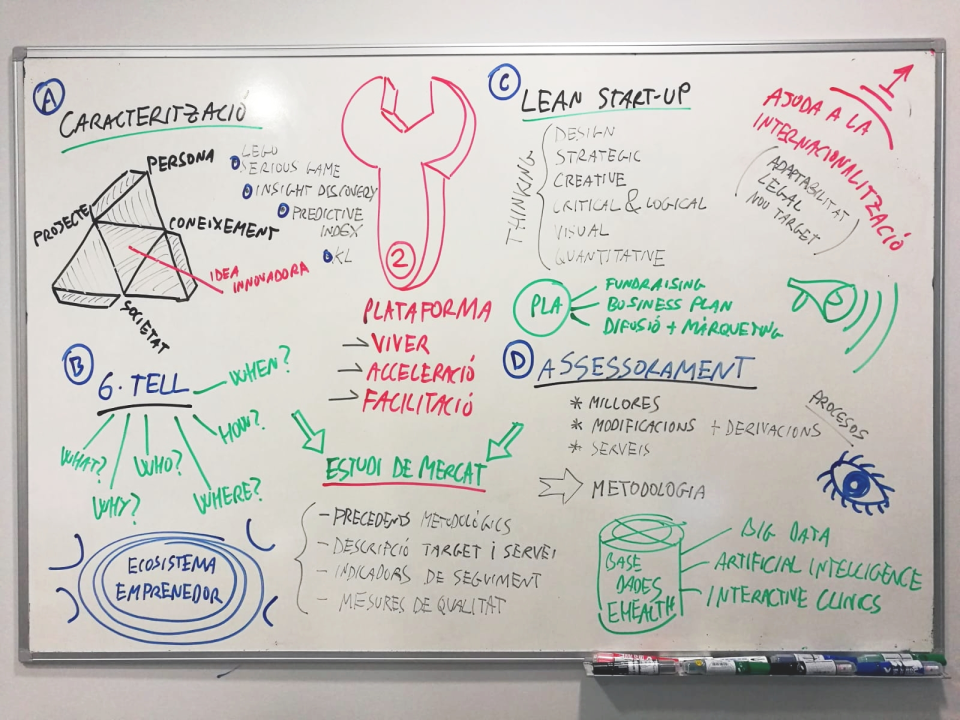 A
CARACTERITZACIÓ
PERSONA
PROJECTE
CONEIXEMENT
SOCIETAT
IDEA
INNOVADORA
LEGO
SERIOUS GAME
INSIGHT DISCOVERY
PREDICTIVE
INDEX
KL
2
PLATAFORMA
→ VIVER
→ ACCELERACIÓ
→ FACILITACIÓ
C
LEAN START-UP
THINKING
DESIGN
STRATEGIC
CREATIVE
CRITICAL & LOGICAL
VISUAL
QUANTITATIVE
PLA
FUNDRAISING
BUSINESS PLAN
DIFUSIÓ + MÀRQUETING
1
AJUDA A LA
INTERNACIONALITZACIÓ
ADAPTABILITAT
LEGAL
NOU TARGET
B
6·TELL
WHEN?
HOW?
WHAT?
WHO?
WHY?
WHERE?
ECOSISTEMA
EMPRENEDOR
ESTUDI DE MERCAT
- PRECEDENTS METODOLÒGICS
- DESCRIPCIÓ TARGET I SERVEI
- INDICADORS DE SEGUIMENT
- MESURES DE QUALITAT
D
ASSESSORAMENT
* MILLORES
* MODIFICACIONS + DERIVACIONS
* SERVEIS
METODOLOGIA
PROCESOS
BASE
DADES
EHEALTH
BIG DATA
ARTIFICIAL INTELLIGENCE
INTERACTIVE CLINICS